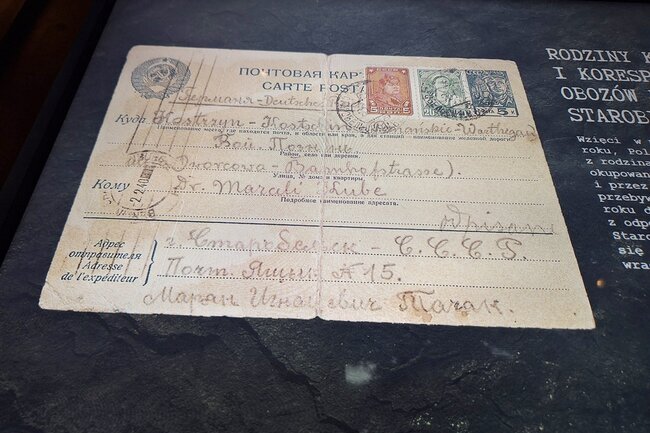 ПОЧТОВАЯ КАР
CARTE POSTA
Германия-Deutsches
Куда Kostrzyn-Kostschin
Наименование места, где находится почта, и области или края, а для станций - наименование железной дороги
Вой. Познань
Район, село или деревня
Dworcowa-Bahnhofstrasse).
Улица, № дома и квартиры
Кому Dr. Marceli Kube
Подробное наименование адресата.
Адрес отправителя
Adresse de l'expéditeur
г. Старобельск С.С.С.Р.
Почт. Ящик А 15.
Марян Игнацевич Тачак.
2.2.40
5
5
RODZINY K
I KORESP
OBOZÓW
STAROB
Wzięci w
roku Pol
z rodzina
okupowan
i przez
przeby
roku d
z odpo
Staro
się
wra